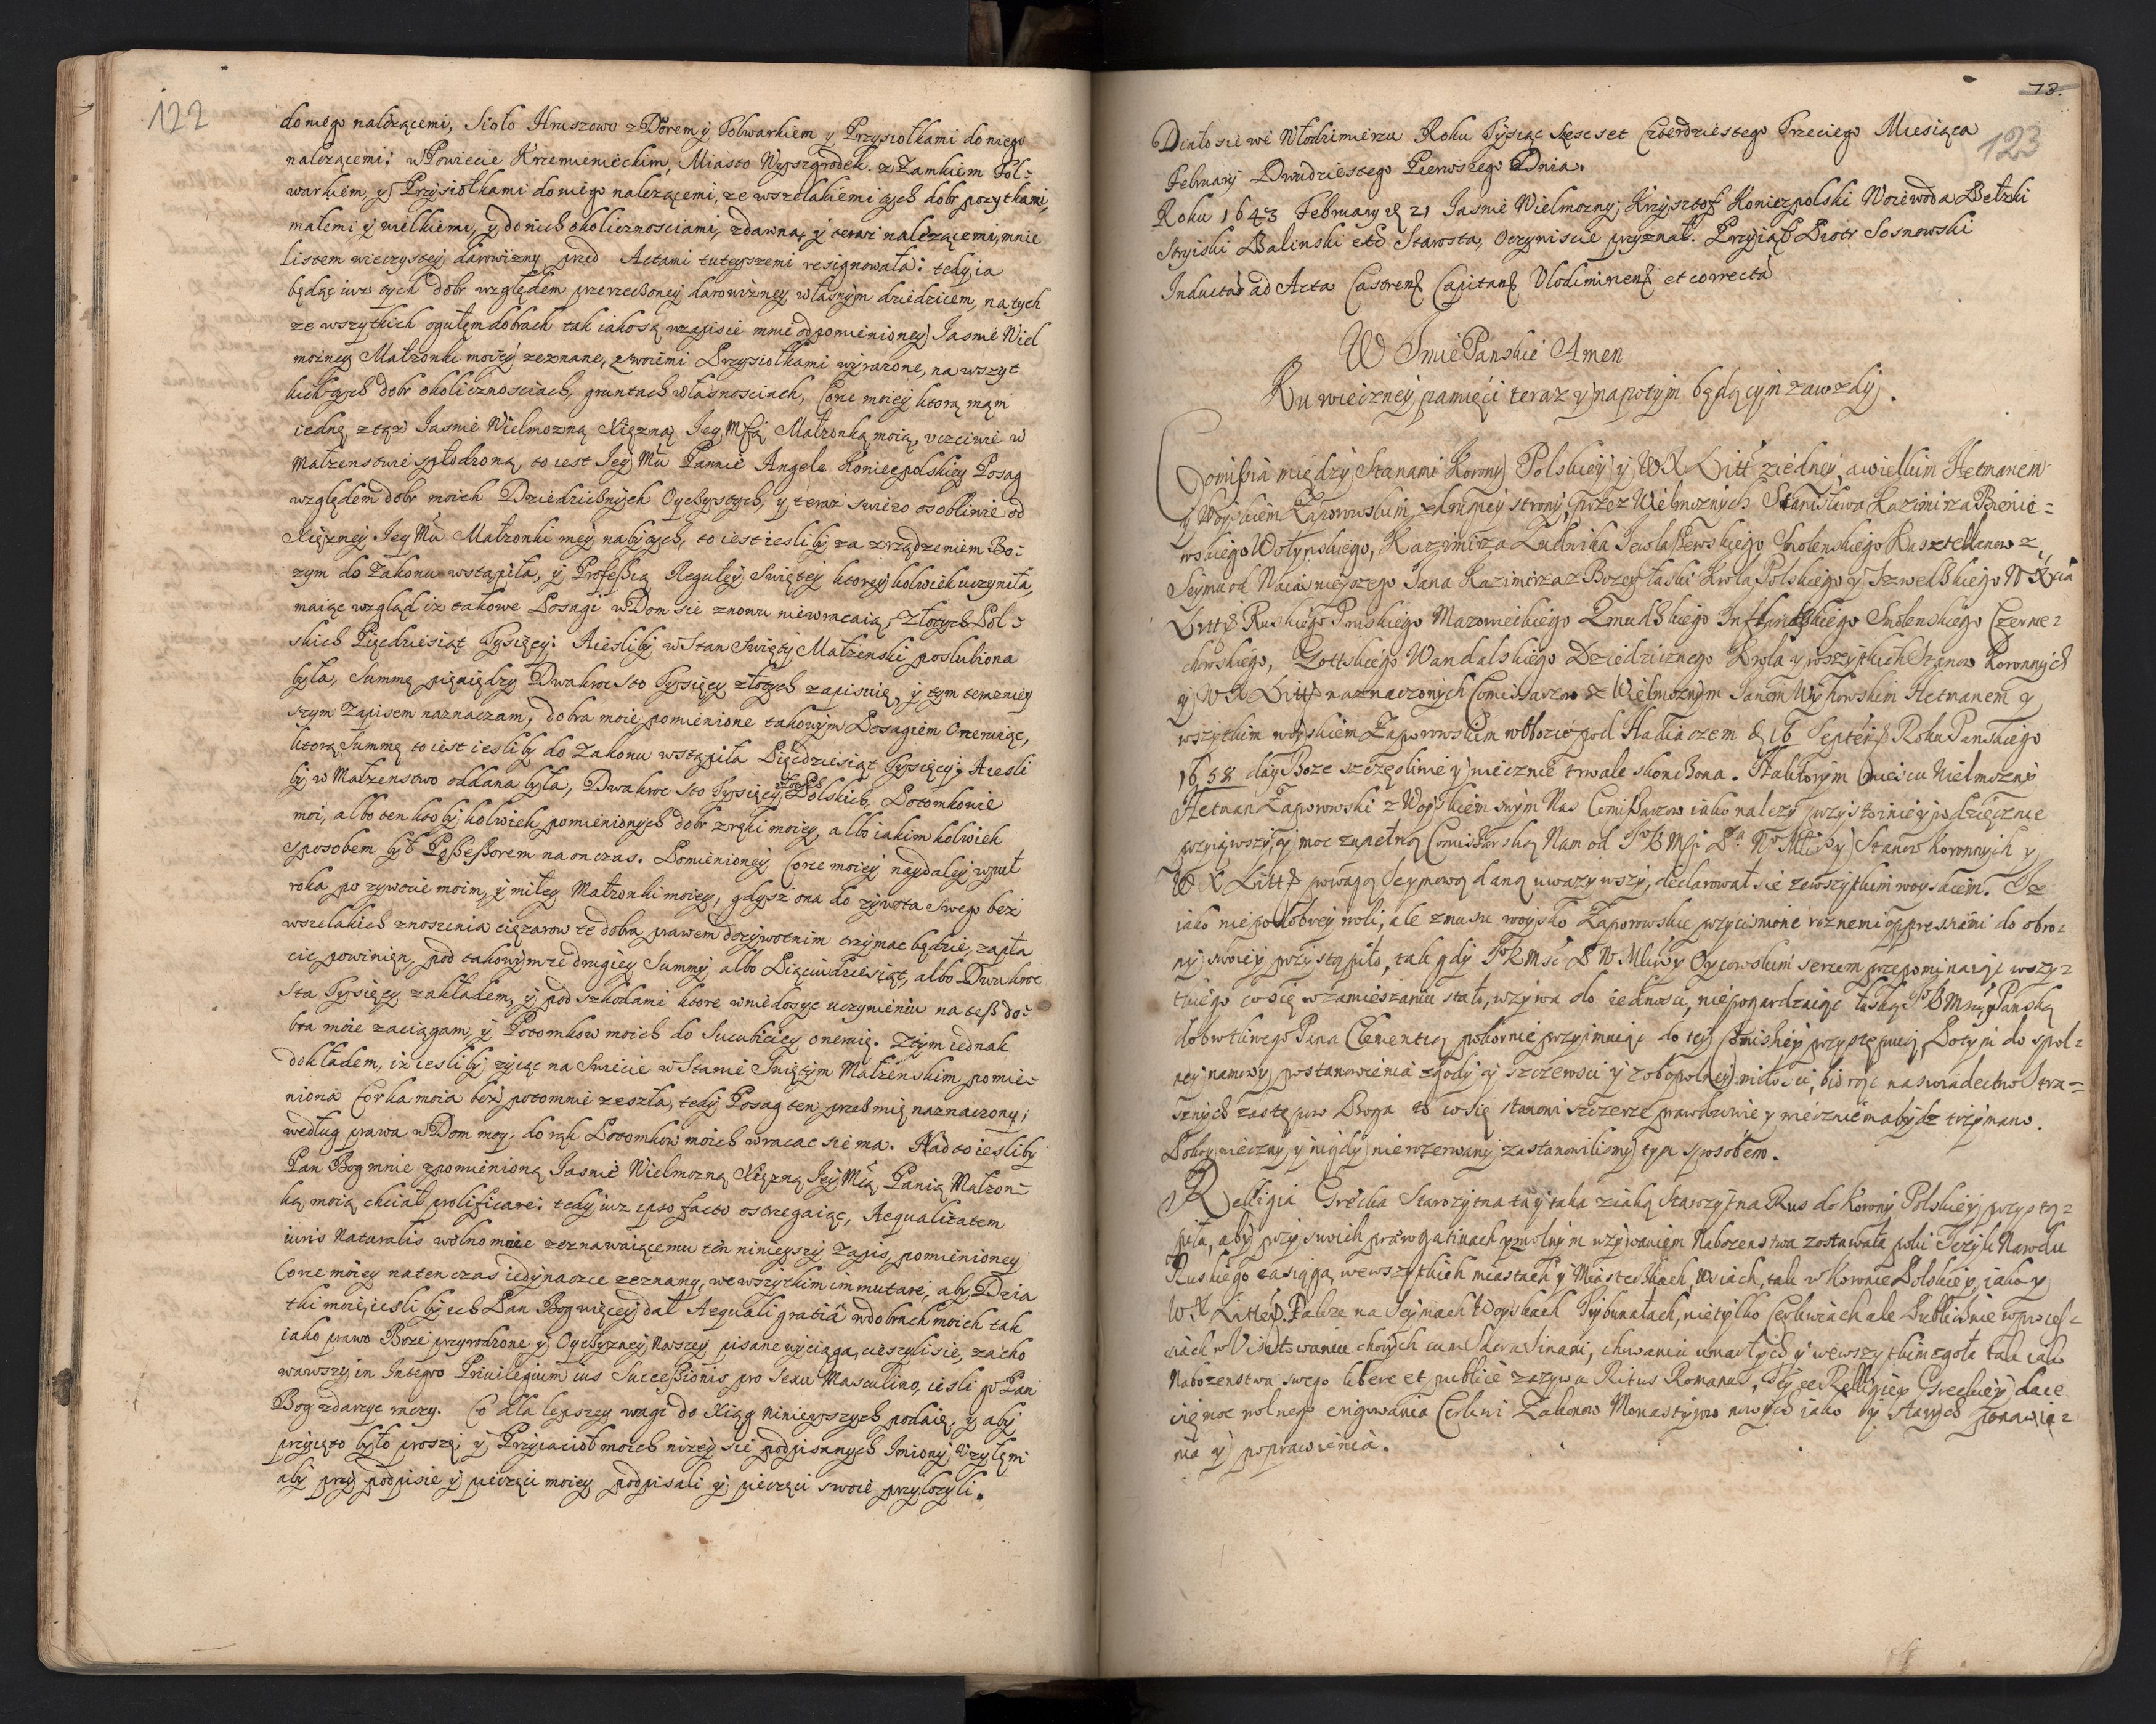 122
do niego nalożącemi, Sioło Hruszowo z Dworem y Folwarkiem y Przysiołkami do niego
nalezącemi; w Powiecie Krzemienieckim, Miasto Wyszgrodek z Zamkiem Fol-
warkiem y Przysiołkami do niego nalezącemi, ze wszelakiemi tych dobr pozytkami,
małemi y wielkiemi, y do nich okolicznosciami, zdawna y teraz nalezącemi, mnie
Listem wieczystey darowizny przed Actami tuteyszemi resignowała: tedy ia
będąc iuz tych dobr względem przerzeczoney darowizney własnym dziedzicem, na tych
ze wszytkich ogułem dobrach tak iako są w zapisie mnie od pomienioney Jasnie Wiel
mozney Małzonki moiey zeznane, z swoimi Przysiołkami wyrazone, na wszyt
kich tych dobr okolicznosciach, gruntach własnosciach, Corce moiey ktorą mam
iedną z tąz Jasnie Wielmozną Xięzną Jey Mscią Małzonką moią, uczciwie w
Małzenstwie spłodzoną, to iest Jey Mci Pannie Angele Koniecpolskiey Posag
względem dobr moich Dziedzicznych Oyczystych, y teraz swiezo osobliwie od
Xięzney Jey Mci Małzonki mey nabytych, to iest iesliby za zrządzeniem Bo-
zym do Zakonu wstąpiła, y Professią Reguły Swiętey ktoreykolwiek uczyniła,
maiąc wzgląd iz takowe Posagi w Dom sie znowu niewracaią, złotych Pol-
skich Pięcdziesiąt Tysięcy: A iesliby w Stan Swięty Małzenski poslubiona
była, Summę pieniędzy Dwakroc Sto Tysięcy złotych zapisuię, y tym teraznieÿ
szym Zapisem naznaczam, dobra moie pomienione takowym Posagiem Oneruiąc,
ktorą Summę to iest iesliby do Zakonu wstąpiła Pięcdziesiąt Tysięcy; A iesli
by w Małzenstwo oddana była, Dwakroc Sto Tysięcy złotych Polskich, Potomkowie
moi, albo ten ktoby kolwiek pomienionych dobr z ręki moiey, albo iakim kolwiek
sposobem był Possessorem na on czas. Pomienioney Corce moiey naydaley w puł
roka po zywocie moim, y miłey Małzonki moiey, gdysz ona do zywota swego bez
wszelakich znoszenia cięzarow te dobra prawem dozywotnim trzymac będzie, zapła
cic powinien, pod takowymze drugiey Summy albo Pięciudziesiąt, albo Dwukroc
Sta Tysięcy zakładem, y pod szkodami ktore w niedosyc uczynieniu na tesz do-
bra moie zaciągam, y Potomkow moich do Succubiciey oneruię. Z tym iednak
dokładem, iz iesliby zyiąc na Swiecie w Stanie Swiętym Małzenskim pomie-
niona Corka moia bez potomnie zeszła, tedy Posag ten przez mię naznaczony,
według prawa w Dom moy, do rąk Potomkow moich wracac sie ma. Nadto iesliby
Pan Bog mnie z pomienioną Jasnie Wielmozną Xięzną Jey Mcią Panią Małzon-
ką moią chciał prolificare: tedy iuz ipso facto ostrzegaiąc, Aequalitatem
iuris Naturalis wolno mnie zeznawaiącemu ten ninieyszy Zapis, pomienioney
Corce moiey na ten czas iedynaczce zeznany, we wszytkim immutare, aby Dzia
tki moie, iesli by ich Pan Bog więcey dał Aequali gratia w dobrach moich tak
iako prawo Boze przyrodzone y Oyczyzney Naszey pisane wyciąga, cieszyli sie, zacho
wawszy in Integro Privilegium ius Successionis pro Sexu Masculino, iesli go Pan
Bog zdarzyc raczy. Co dla lepszey wagi do Xiąg ninieyszych podaię, y aby
przyięto było proszę, y Przyiacioł moich nizey sie podpisanych Imiony, Uzyłem
aby przy podpisie y pieczęci moiey podpisali y pieczęci swoie przyłozyli.
73.
123
Działo sie we Włodzimierzu Roku Tysiąc Szescset Czterdziestego Trzeciego Miesiąca
February Dwudziestego Pierwszego Dnia.
Roku 1643 February 21 Jasnie Wielmozny Krzysztof Koniecpolski Woiewoda Bełzki
Stryiski Balinski etc Starosta, Oczywiscie przyznał. Przyiął Piotr Sosnowski
Inducta ad Acta Castren Capitan Vlodimirien et correcta
W Imie Panskie Amen
Ku wieczney pamięci teraz y na potym będącym zawzdy.
Comissia między Stanami Korony Polskiey y W X Litt z iedney, a wielkim Hetmanem
y Woyskiem Zaporowskim, z drugiey strony, przez Wielmoznych Stanisława Kazimirza Bienie-
wskiego Wołynskiego, Kazimirza Ludwika Jewłaszewskiego Smolenskiego Kasztellanow z
Seymu od Naiasnieyszego Jana Kazimirza z Bozey łaski Krola Polskiego y Szwedzkiego W Xcia
Litt Ruskiego Pruskiego Mazowieckiego Zmudzkiego Inflantskiego Smolenskiego Czernie-
chowskiego, Gottskiego Wandalskiego Dziedzicznego Krola y wszytkich Stanow Koronnych
y W X Litt naznaczonych Comissarzow z Wielmoznym Janem Wyhowskim Hetmanem y
wszytkim woyskiem Zaporowskim w Obozie pod Hadiaczem d 16 Septem Roku Panskiego
1658 day Boze szczęsliwie y wiecznie trwale skonczona. Na ktorym mieyscu Wielmozny
Hetman Zaporowski z Woyskiem swym Nas Comissarzow iako nalezy przystoinie y wdzięcznie
przyiąwszy, y moc zupełną Comissarską Nam od JoKMsci Pa No Młciwy Stanow Koronnych y
W X Litt powagą Seymową daną uwazywszy, declarował sie ze wszytkim woyskiem. Iz
iako nie po dobrey woli, ale z musu woysko Zaporowskie przycisnione roznemi oppressiami do obro-
ny swoiey przystąpiło, tak gdy JoKMsc P N Mciwy Oycowskim sercem przepominaiąc wszy-
tkiego co się w zamieszaniu stało, wzywa do iednosci, nie pogardzaiąc łaską JoKMsci y Panską
dobrotliwego Pana Clementią pokornie przyimuią do tey Comissiey przystępuią, Potym do spol-
ney namowy postanowienia zgody y szczerosci y zobopolney miłosci, biorąc na swiadectwo Stra-
sznych zastępow Boga ze co się stanowi szczerze prawdziwie y wiecznie ma bydz trzymano.
Pokoy wieczny y nigdy nierozerwany zastanowilismy tym sposobem.
1 Relligia Grecka Starozytna ta y taka z iaką Starozytna Rus do Korony Polskiey przystą-
piła, aby przy swich prærogatiwach y wolnym uzywaniem Nabozenstwa zostawała poki Ięzyk Narodu
Ruskiego zasięga, we wszytkich miastach y Miasteczkach, Wsiach, tak w Koronie Polskiey, iako y
W X Litten. Takze na Seymach Woyskach Trybunałach, nie tylko Cerkwiach ale Publicznie w proces-
siach w Visitowaniu chorych cum Sacra Sinaxi, chowaniu umarłych y we wszytkim zgoła tak iako
Nabozenstwa swego libere et publice zazywa Ritus Romanus, Teyze Relligiey Greckiey daie
się moc wolnego erigowania Cerkwi Zakonow Monastyrow nowych iako y Starych ponawia-
nia y poprawienia.